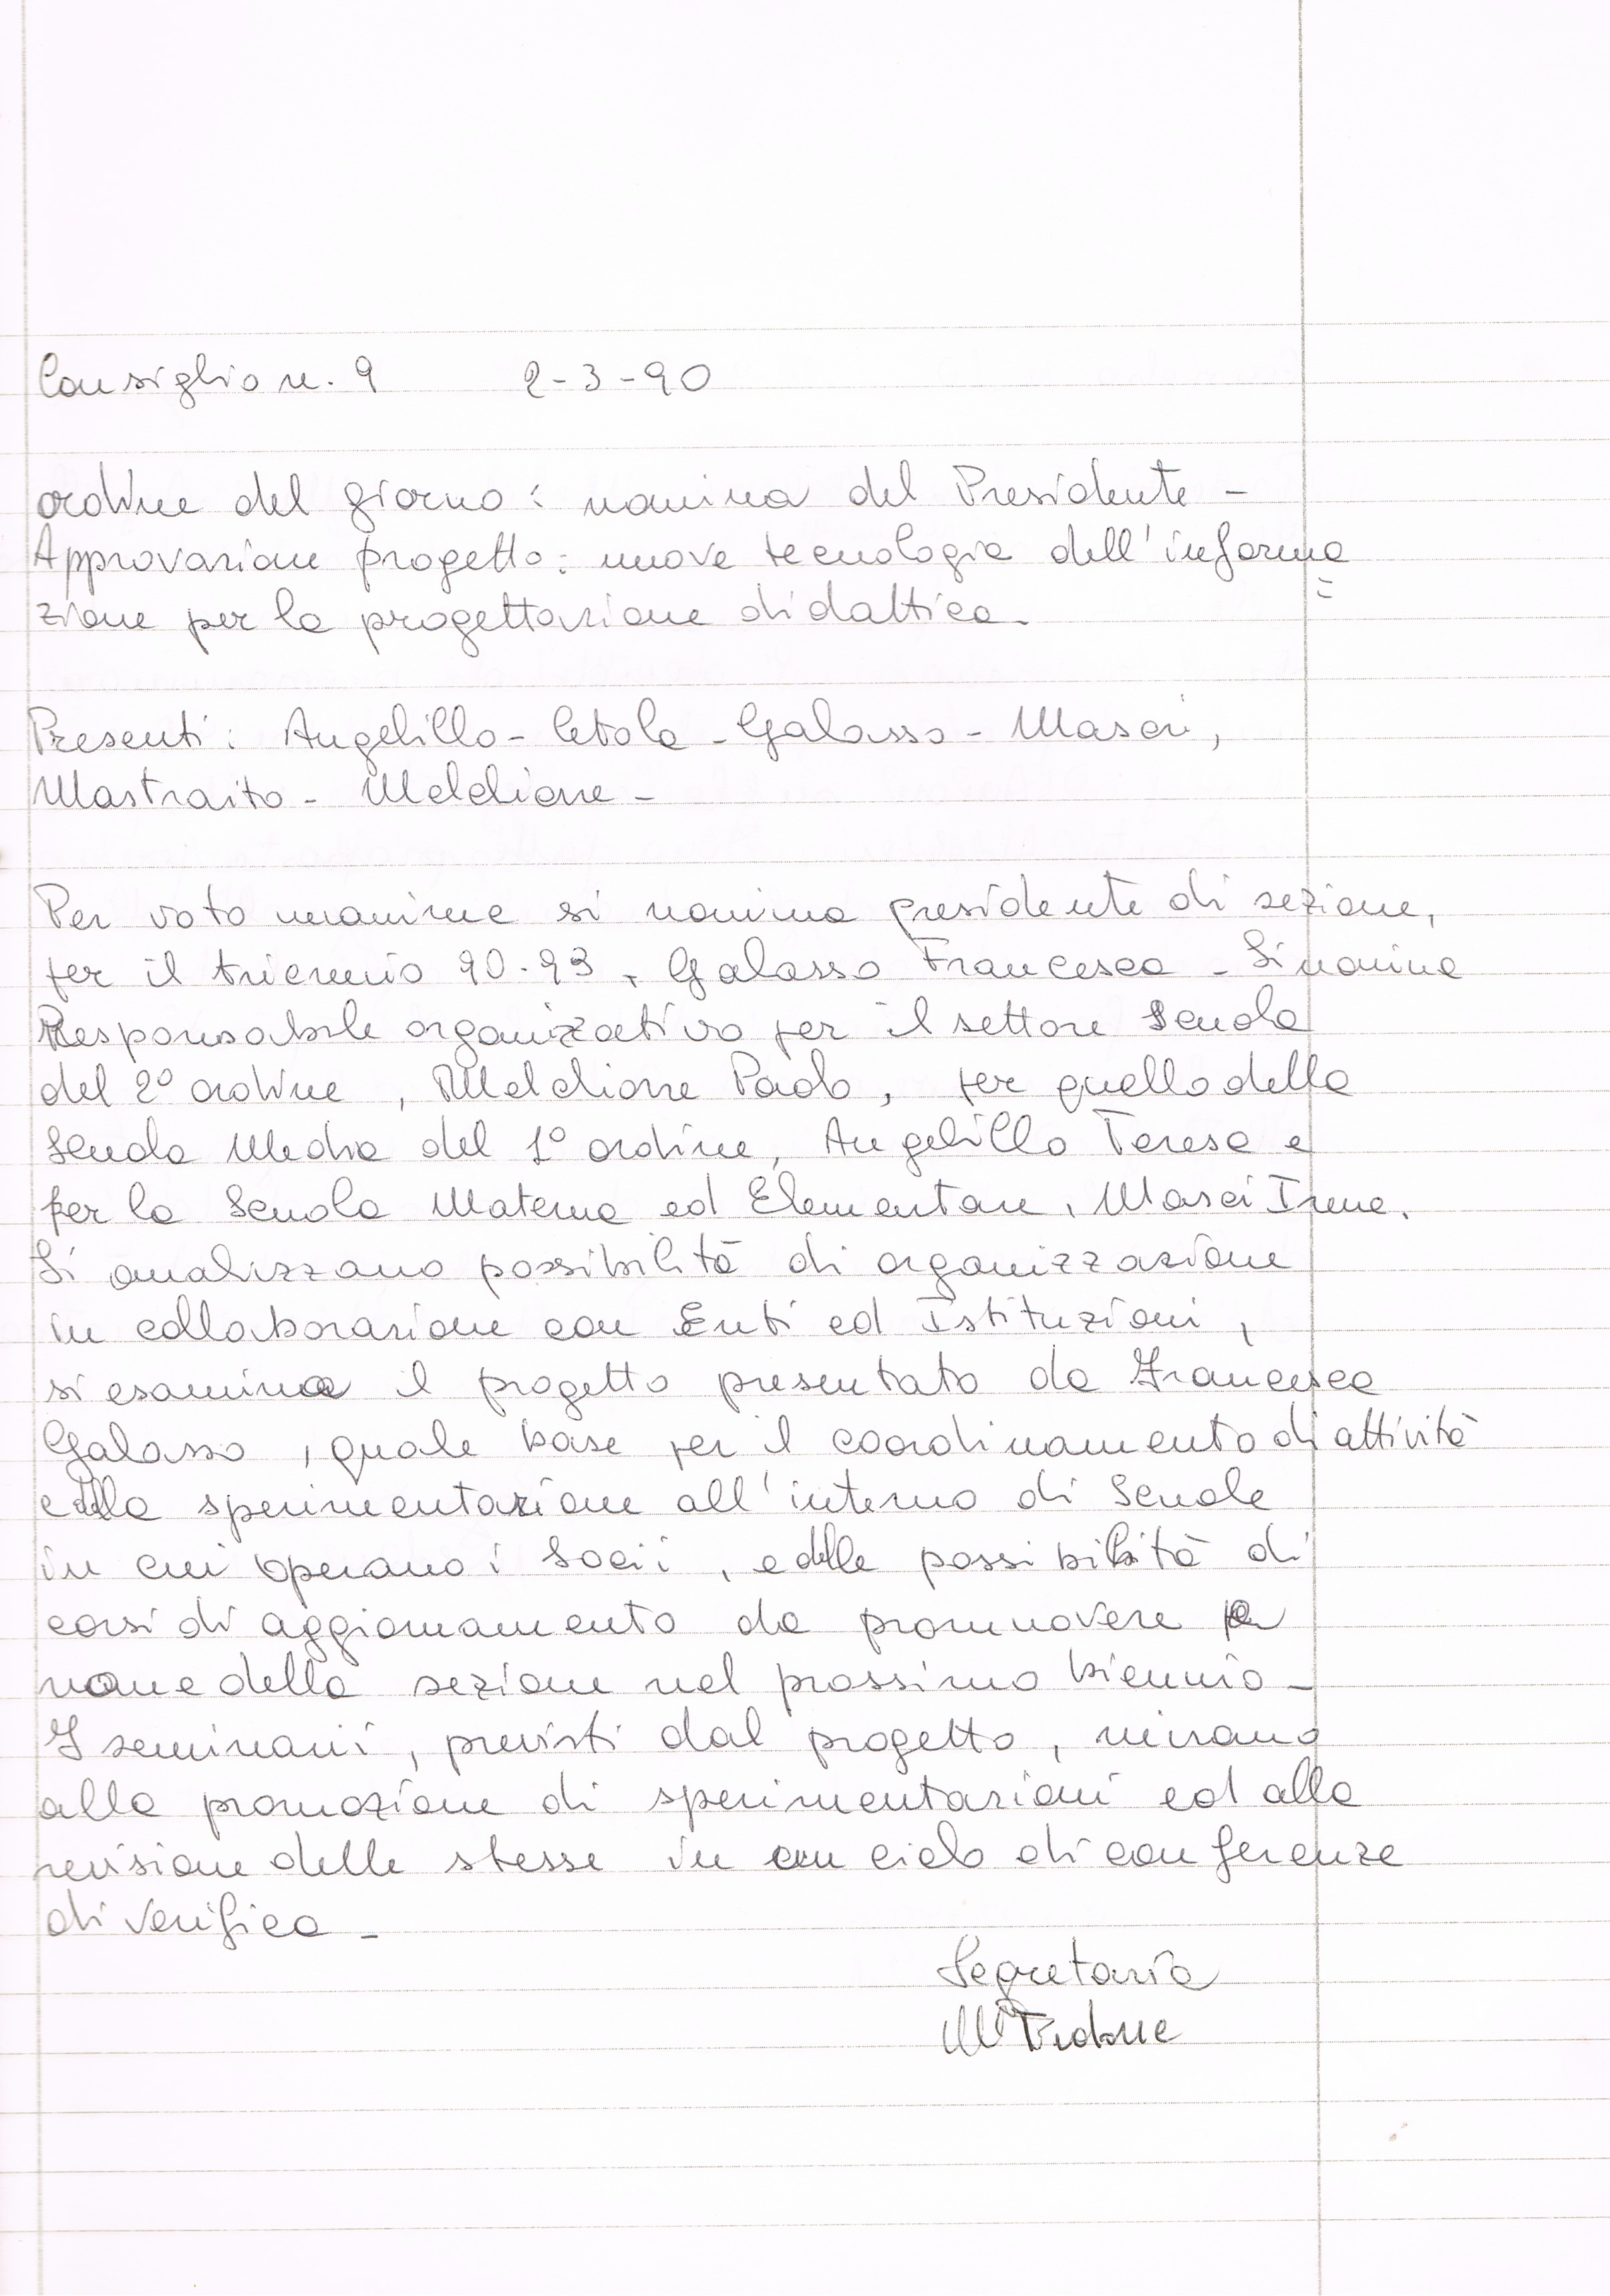 Consiglio n. 9 2-3-90
ordine del giorno: nomina del Presidente -
Approvazione progetto: nuove tecnologie dell'informa
zione per la progettazione didattica.
Presenti: Angelillo - Cetola - Galasso - Masci,
Mastraito - Melchiorre -
Per voto unanime si nomina presidente di sezione,
per il triennio 90-93, Galasso Francesca - Si nomina
Responsabile organizzativo per il settore Scuola
del 2° ordine, Melchiorre Paolo, per quello della
Scuola Media del 1° ordine, Angelillo Teresa e
per la Scuola Materna ed Elementare, Masci Irene.
Si analizzano possibilità di organizzazione
in collaborazione con Enti ed Istituzioni,
si esamina il progetto presentato da Francesca
Galasso, quale base per il coordinamento di attività
e della sperimentazione all'interno di Scuole
in cui operano i Soci, e delle possibilità di
corsi di aggiornamento da promuovere a
nome della sezione nel prossimo biennio -
I seminari, previsti dal progetto, mirano
alla promozione di sperimentazioni ed alla
revisione delle stesse in un ciclo di conferenze
di verifica -
Segretaria